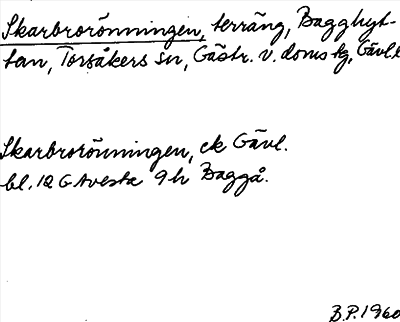 Skarbrorönningen, terräng, Bagghyt-
tan, Torsåkers sn, Gästr. v. doms tg, Gävl. l
Skarbrorönningen, ek Gävl.
bl. 12 G Avesta 9 h Baggå.
B.P. 1960